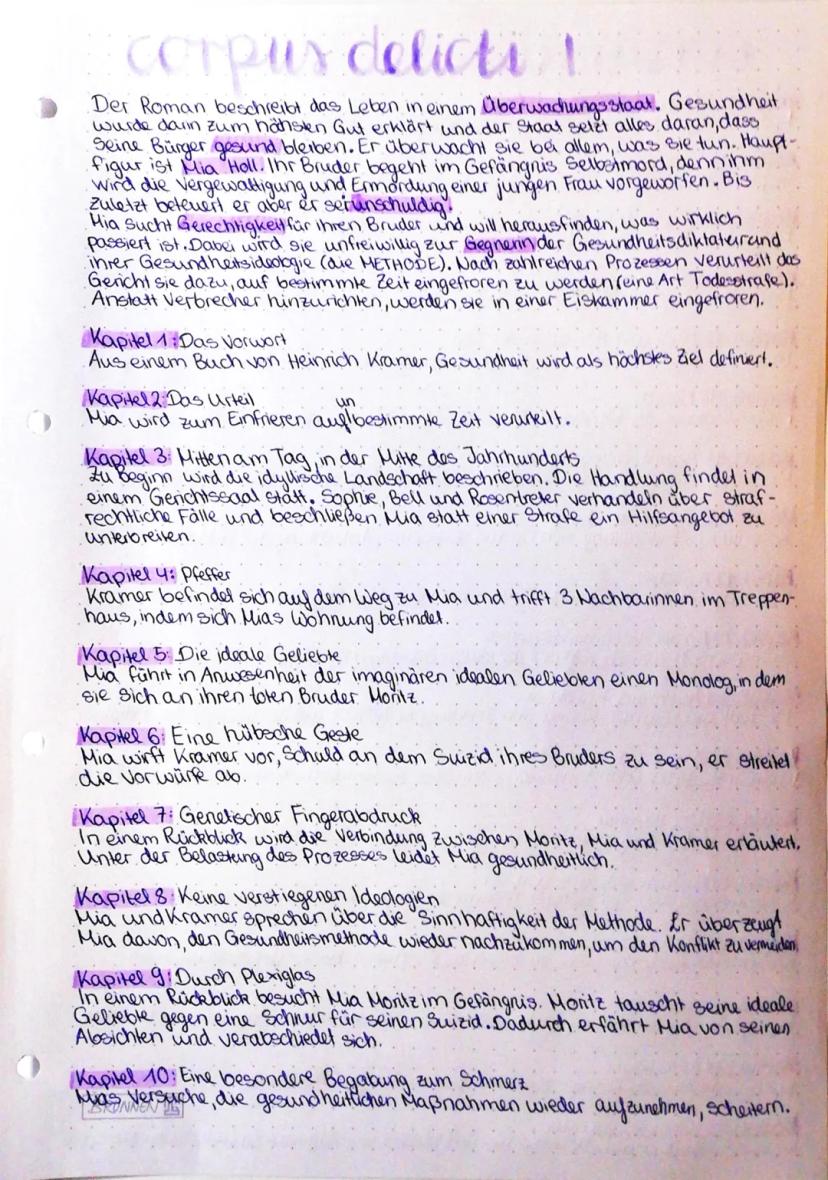 corpus delicti 1
Der Roman beschreibt das Leben in einem Überwachungsstaat. Gesundheit
wurde darin zum höhsten Gut erklärt und der Staat setzt alles daran, dass
seine Bürger gesund bleiben. Er überwacht sie bei allem, was sie tun. Haupt-
figur ist Mia Holl. Ihr Bruder begeht im Gefängnis Selbstmord, denn ihm
wird die Vergewaltigung und Ermordung einer jungen Frau vorgeworfen. Bis
zuletzt beteuert er aber er sei unschuldig.
Mia sucht Gerechtigkeit für ihren Bruder und will herausfinden, was wirklich
passiert ist. Dabei wird sie unfreiwillig zur Gegnerin der Gesundheitsdiktatur und
ihrer Gesundheitsideologie (die METHODE). Nach zahlreichen Prozessen verurteilt das
Gericht sie dazu, auf bestimmte Zeit eingefroren zu werden (eine Art Todesstrafe).
Anstatt Verbrecher hinzurichten, werden sie in einer Eiskammer eingefroren.
Kapitel 1: Das Vorwort
Aus einem Buch von Heinrich Kramer, Gesundheit wird als höchstes Ziel definiert.
Kapitel 2: Das Urteil
Mia wird zum Einfrieren auf unbestimmte Zeit verurteilt.
Kapitel 3: Mitten am Tag, in der Mitte des Jahrhunderts
Zu Beginn wird die idyllische Landschaft beschrieben. Die Handlung findet in
einem Gerichtssaal statt. Sophie, Bell und Rosentreter verhandeln über straf-
rechtliche Fälle und beschließen Mia statt einer Strafe ein Hilfsangebot zu
unterbreiten.
Kapitel 4: Pfeffer
Kramer befindet sich auf dem Weg zu Mia und trifft 3 Nachbarinnen im Treppen-
haus, indem sich Mias Wohnung befindet.
Kapitel 5: Die ideale Geliebte
Mia führt in Anwesenheit der imaginären idealen Geliebten einen Monolog, in dem
sie sich an ihren toten Bruder Moritz.
Kapitel 6: Eine hübsche Geste
Mia wirft Kramer vor, Schuld an dem Suizid ihres Bruders zu sein, er streitet
die Vorwürfe ab.
Kapitel 7: Genetischer Fingerabdruck
In einem Rückblick wird die Verbindung zwischen Moritz, Mia und Kramer erläutert.
Unter der Belastung des Prozesses leidet Mia gesundheitlich.
Kapitel 8: Keine verstiegenen Ideologien
Mia und Kramer sprechen über die Sinnhaftigkeit der Methode. Er überzeugt
Mia davon, den Gesundheitsmethode wieder nachzukommen, um den Konflikt zu vermeiden.
Kapitel 9: Durch Plexiglas
In einem Rückblick besucht Mia Moritz im Gefängnis. Moritz tauscht seine ideale
Geliebte gegen eine Schnur für seinen Suizid. Dadurch erfährt Mia von seinen
Absichten und verabschiedet sich.
Kapitel 10: Eine besondere Begabung zum Schmerz
Mias Versuche, die gesundheitlichen Maßnahmen wieder aufzunehmen, scheitern.
BRUNNEN